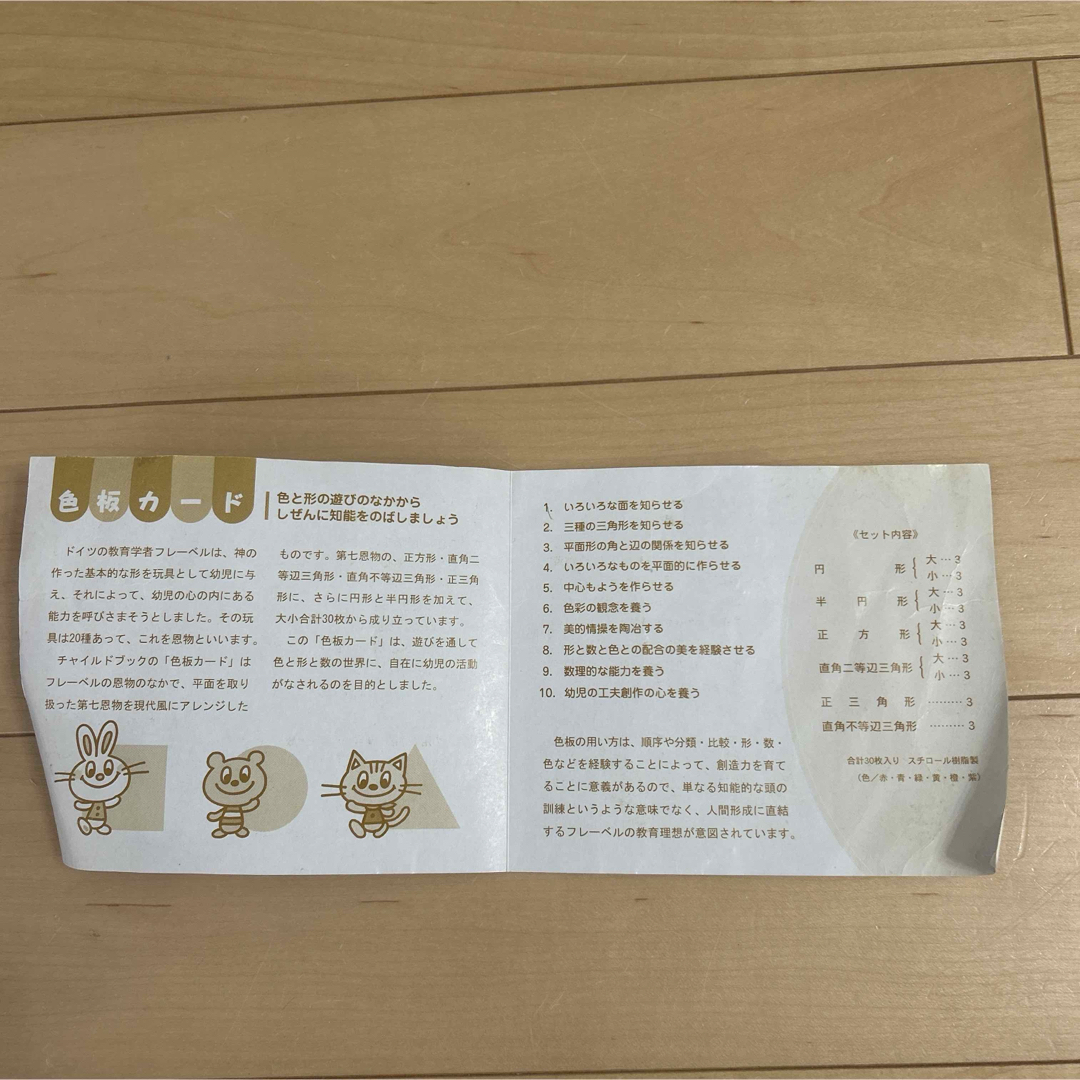 色板カード
色と形の遊びのなかから
しぜんに知能をのばしましょう
ドイツの教育学者フレーベルは、神の
作った基本的な形を玩具として幼児に与
え、それによって、幼児の心の内にある
能力を呼びさまそうとしました。その玩
具は20種あって、これを恩物といいます。
チャイルドブックの「色板カード」は
フレーベルの恩物のなかで、平面を取り
扱った第七恩物を現代風にアレンジした
ものです。第七恩物の、正方形・直角二
等辺三角形・直角不等辺三角形・正三角
形に、さらに円形と半円形を加えて、
大小合計30枚から成り立っています。
この「色板カード」は、遊びを通して
色と形と数の世界に、自在に幼児の活動
がなされるのを目的としました。
1. いろいろな面を知らせる
2. 三種の三角形を知らせる
3. 平面形の角と辺の関係を知らせる
4. いろいろなものを平面的に作らせる
5. 中心もようを作らせる
6. 色彩の観念を養う
7. 美的情操を陶冶する
8. 形と数と色との配合の美を経験させる
9. 数理的な能力を養う
10. 幼児の工夫創作の心を養う
色板の用い方は、順序や分類・比較・形・数・
色などを経験することによって、創造力を育て
ることに意義があるので、単なる知能的な頭の
訓練というような意味でなく、人間形成に直結
するフレーベルの教育理想が意図されています。
《セット内容》
円形{大…3
小…3
半円形{大…3
小…3
正方形{大…3
小…3
直角二等辺三角形{大…3
小…3
正三角形………3
直角不等辺三角形………3
合計30枚入り スチロール樹脂製
(色/赤・青・緑・黄・橙・紫)